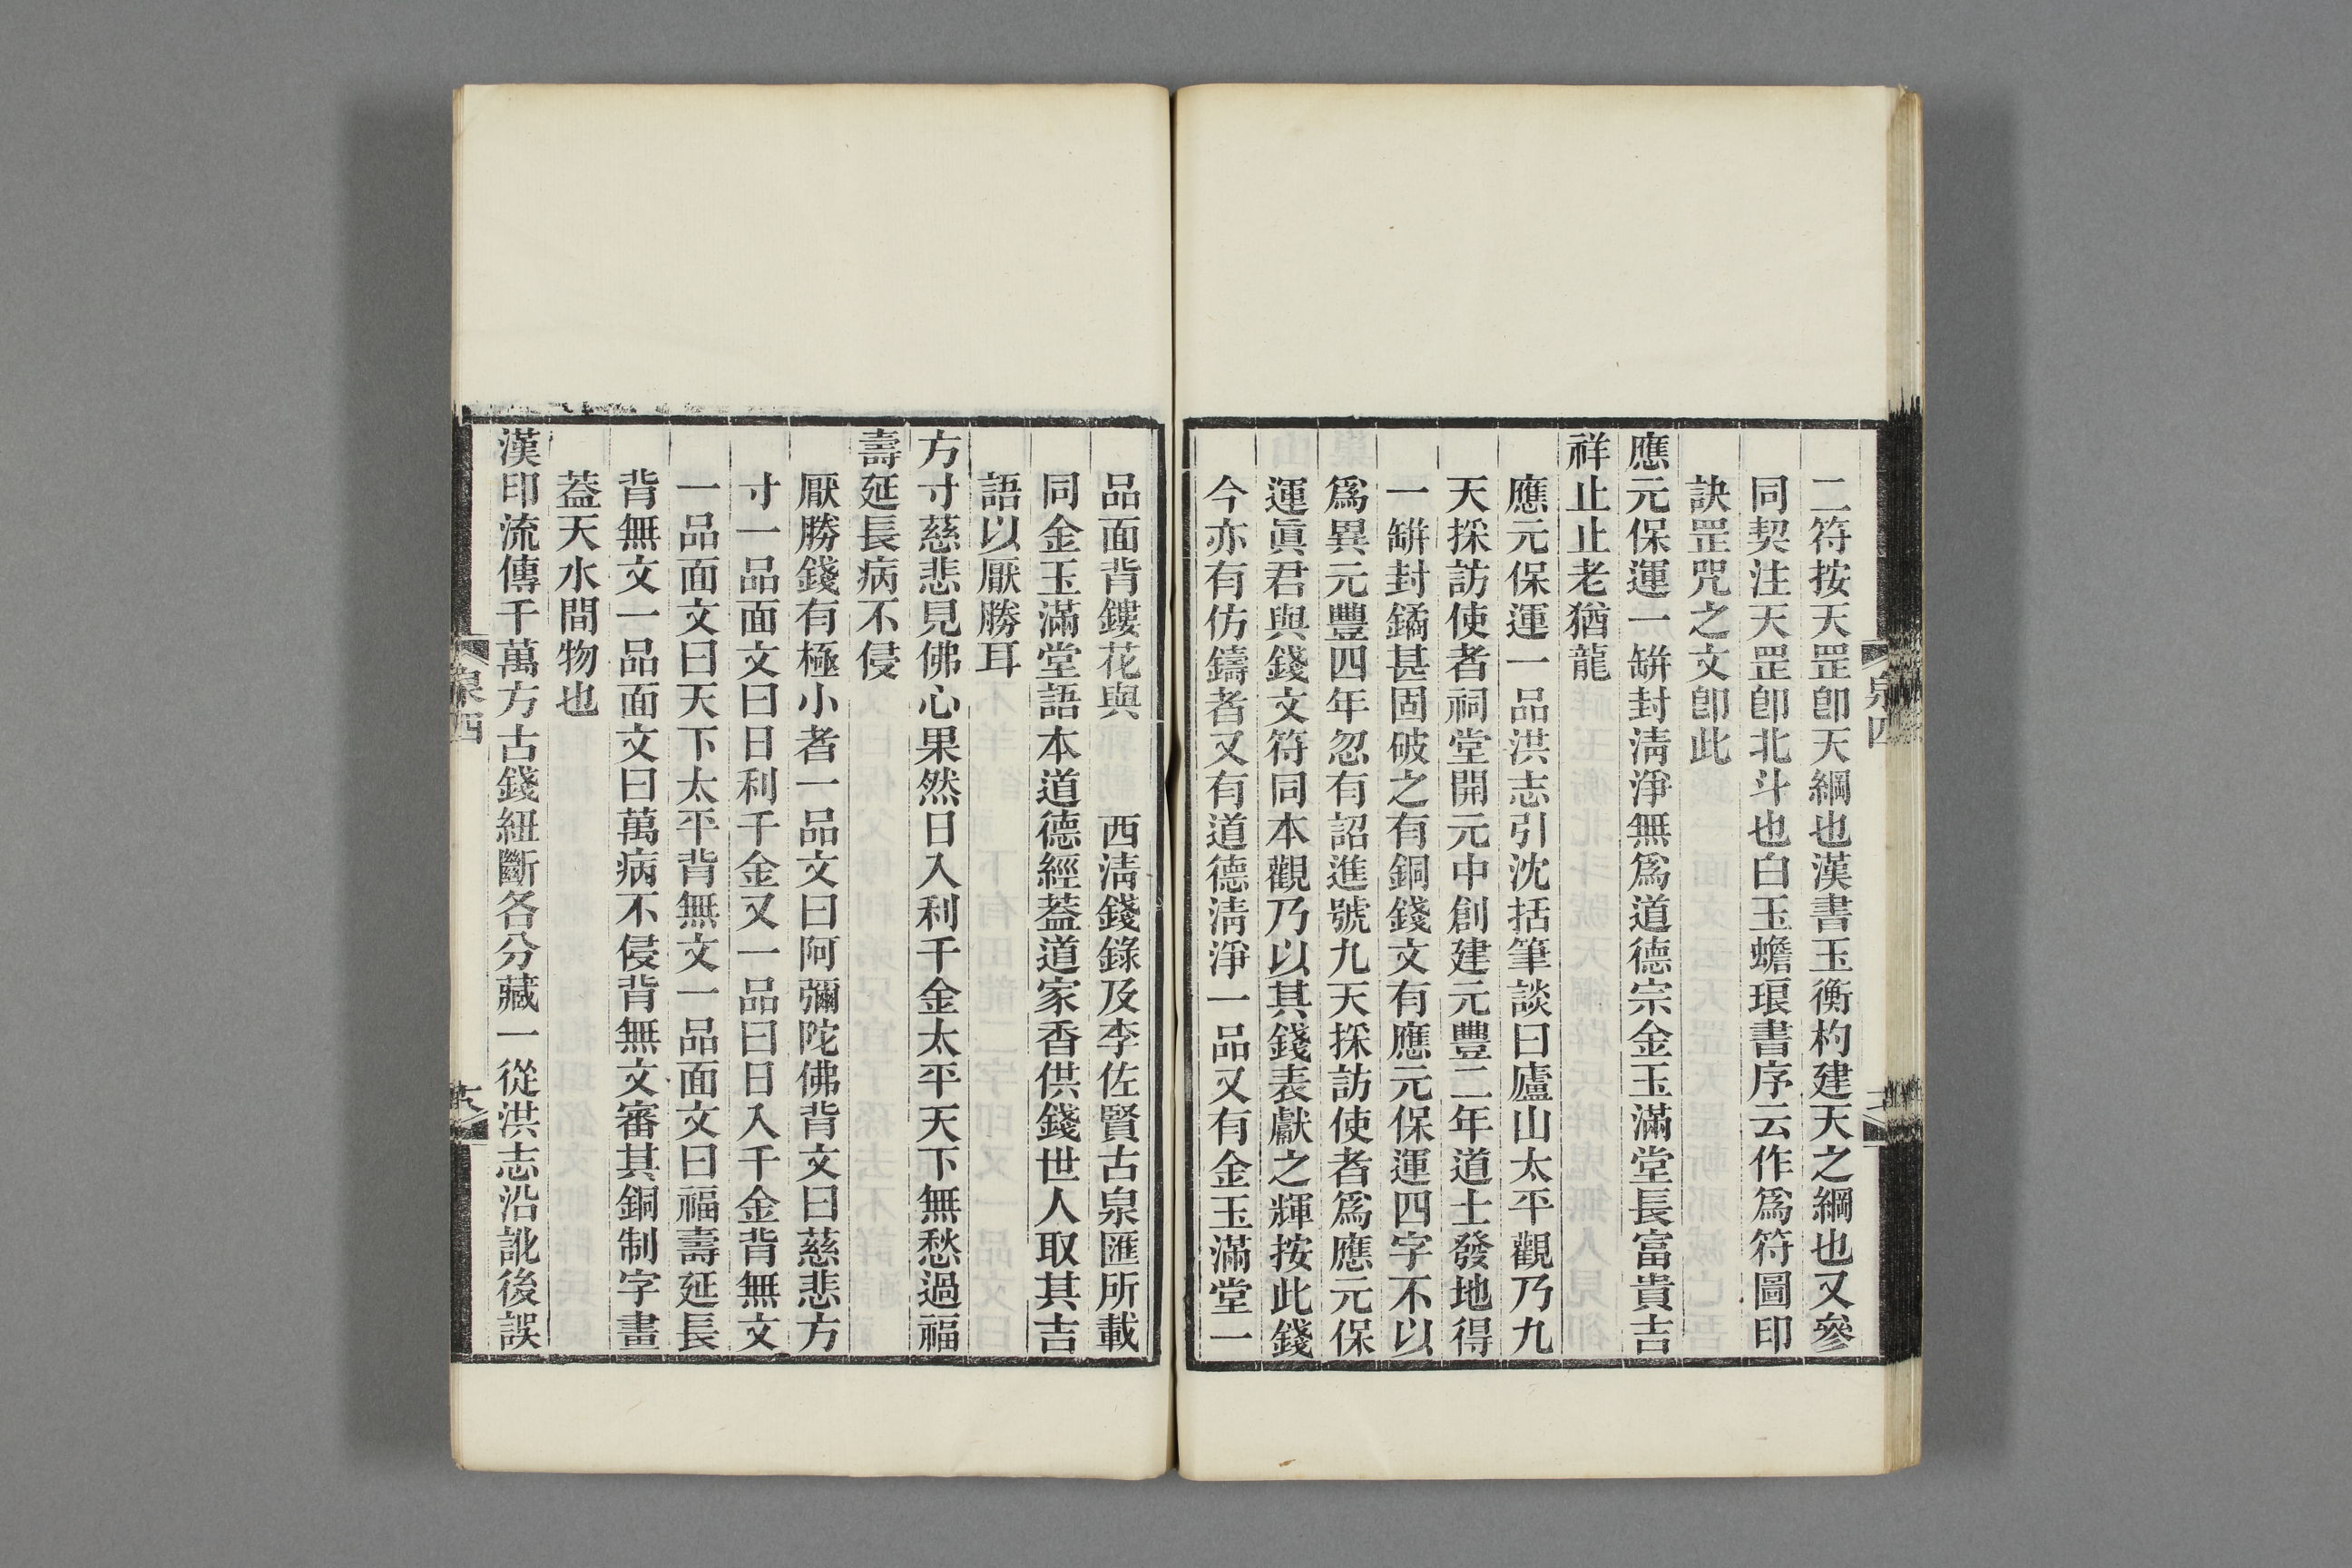 二符按天罡卽天綱也漢書玉衡杓建天之綱也又參
同契注天罡卽北斗也白玉蟾琅書序云作爲符圖印
訣罡咒之文卽此
應元保運一缾封淸淨無爲道德宗金玉滿堂長富貴吉
祥止止老猶龍
應元保運一品洪志引沈括筆談曰廬山太平觀乃九
天採訪使者祠堂開元中創建元豐二年道士發地得
一缾封鐍甚固破之有銅錢文有應元保運四字不以
爲異元豐四年忽有詔進號九天採訪使者爲應元保
運眞君與錢文符同本觀乃以其錢表獻之輝按此錢
今亦有仿鑄者又有道德淸淨一品又有金玉滿堂一
泉四
品面背鏤花與 西淸錢錄及李佐賢古泉匯所載
同金玉滿堂語本道德經蓋道家香供錢世人取其吉
語以厭勝耳
方寸慈悲見佛心果然日入利千金太平天下無愁過福
壽延長病不侵
厭勝錢有極小者一品文曰阿彌陀佛背文曰慈悲方
寸一品面文曰日利千金又一品曰日入千金背無文
一品面文曰天下太平背無文一品面文曰福壽延長
背無文一品面文曰萬病不侵背無文審其銅制字畫
蓋天水間物也
漢印流傳千萬方古錢紐斷各分藏一從洪志沿訛後誤
泉四